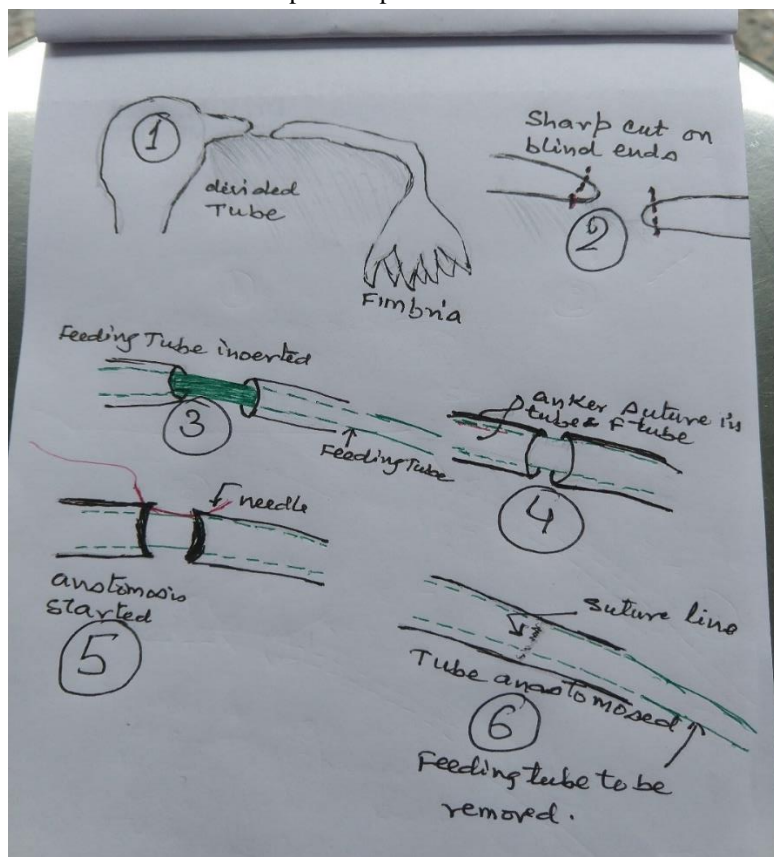 1
divided
Tube
Fimbria
Sharp cut on
blind ends
2
Feeding Tube inserted
3
Feeding Tube
anker suture in
tube & F-tube
4
needle
anstomosis
started
5
suture line
Tube anastomosed
6
Feeding tube to be
removed.